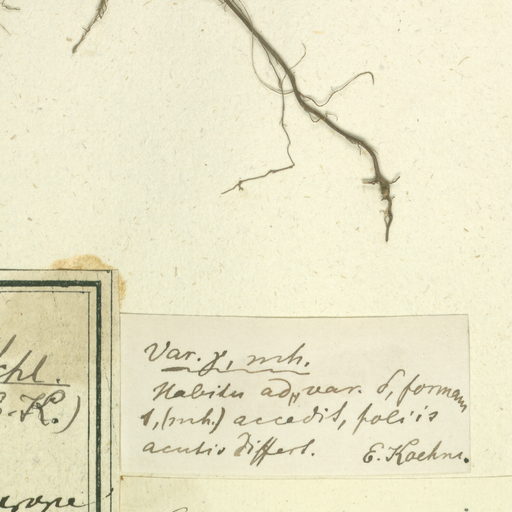 Var. γ, mh.
Habitu ad var. δ, formam
1, (mh.) accedit, foliis
acutis differt.
E. Koehne.
chl.
-K.)